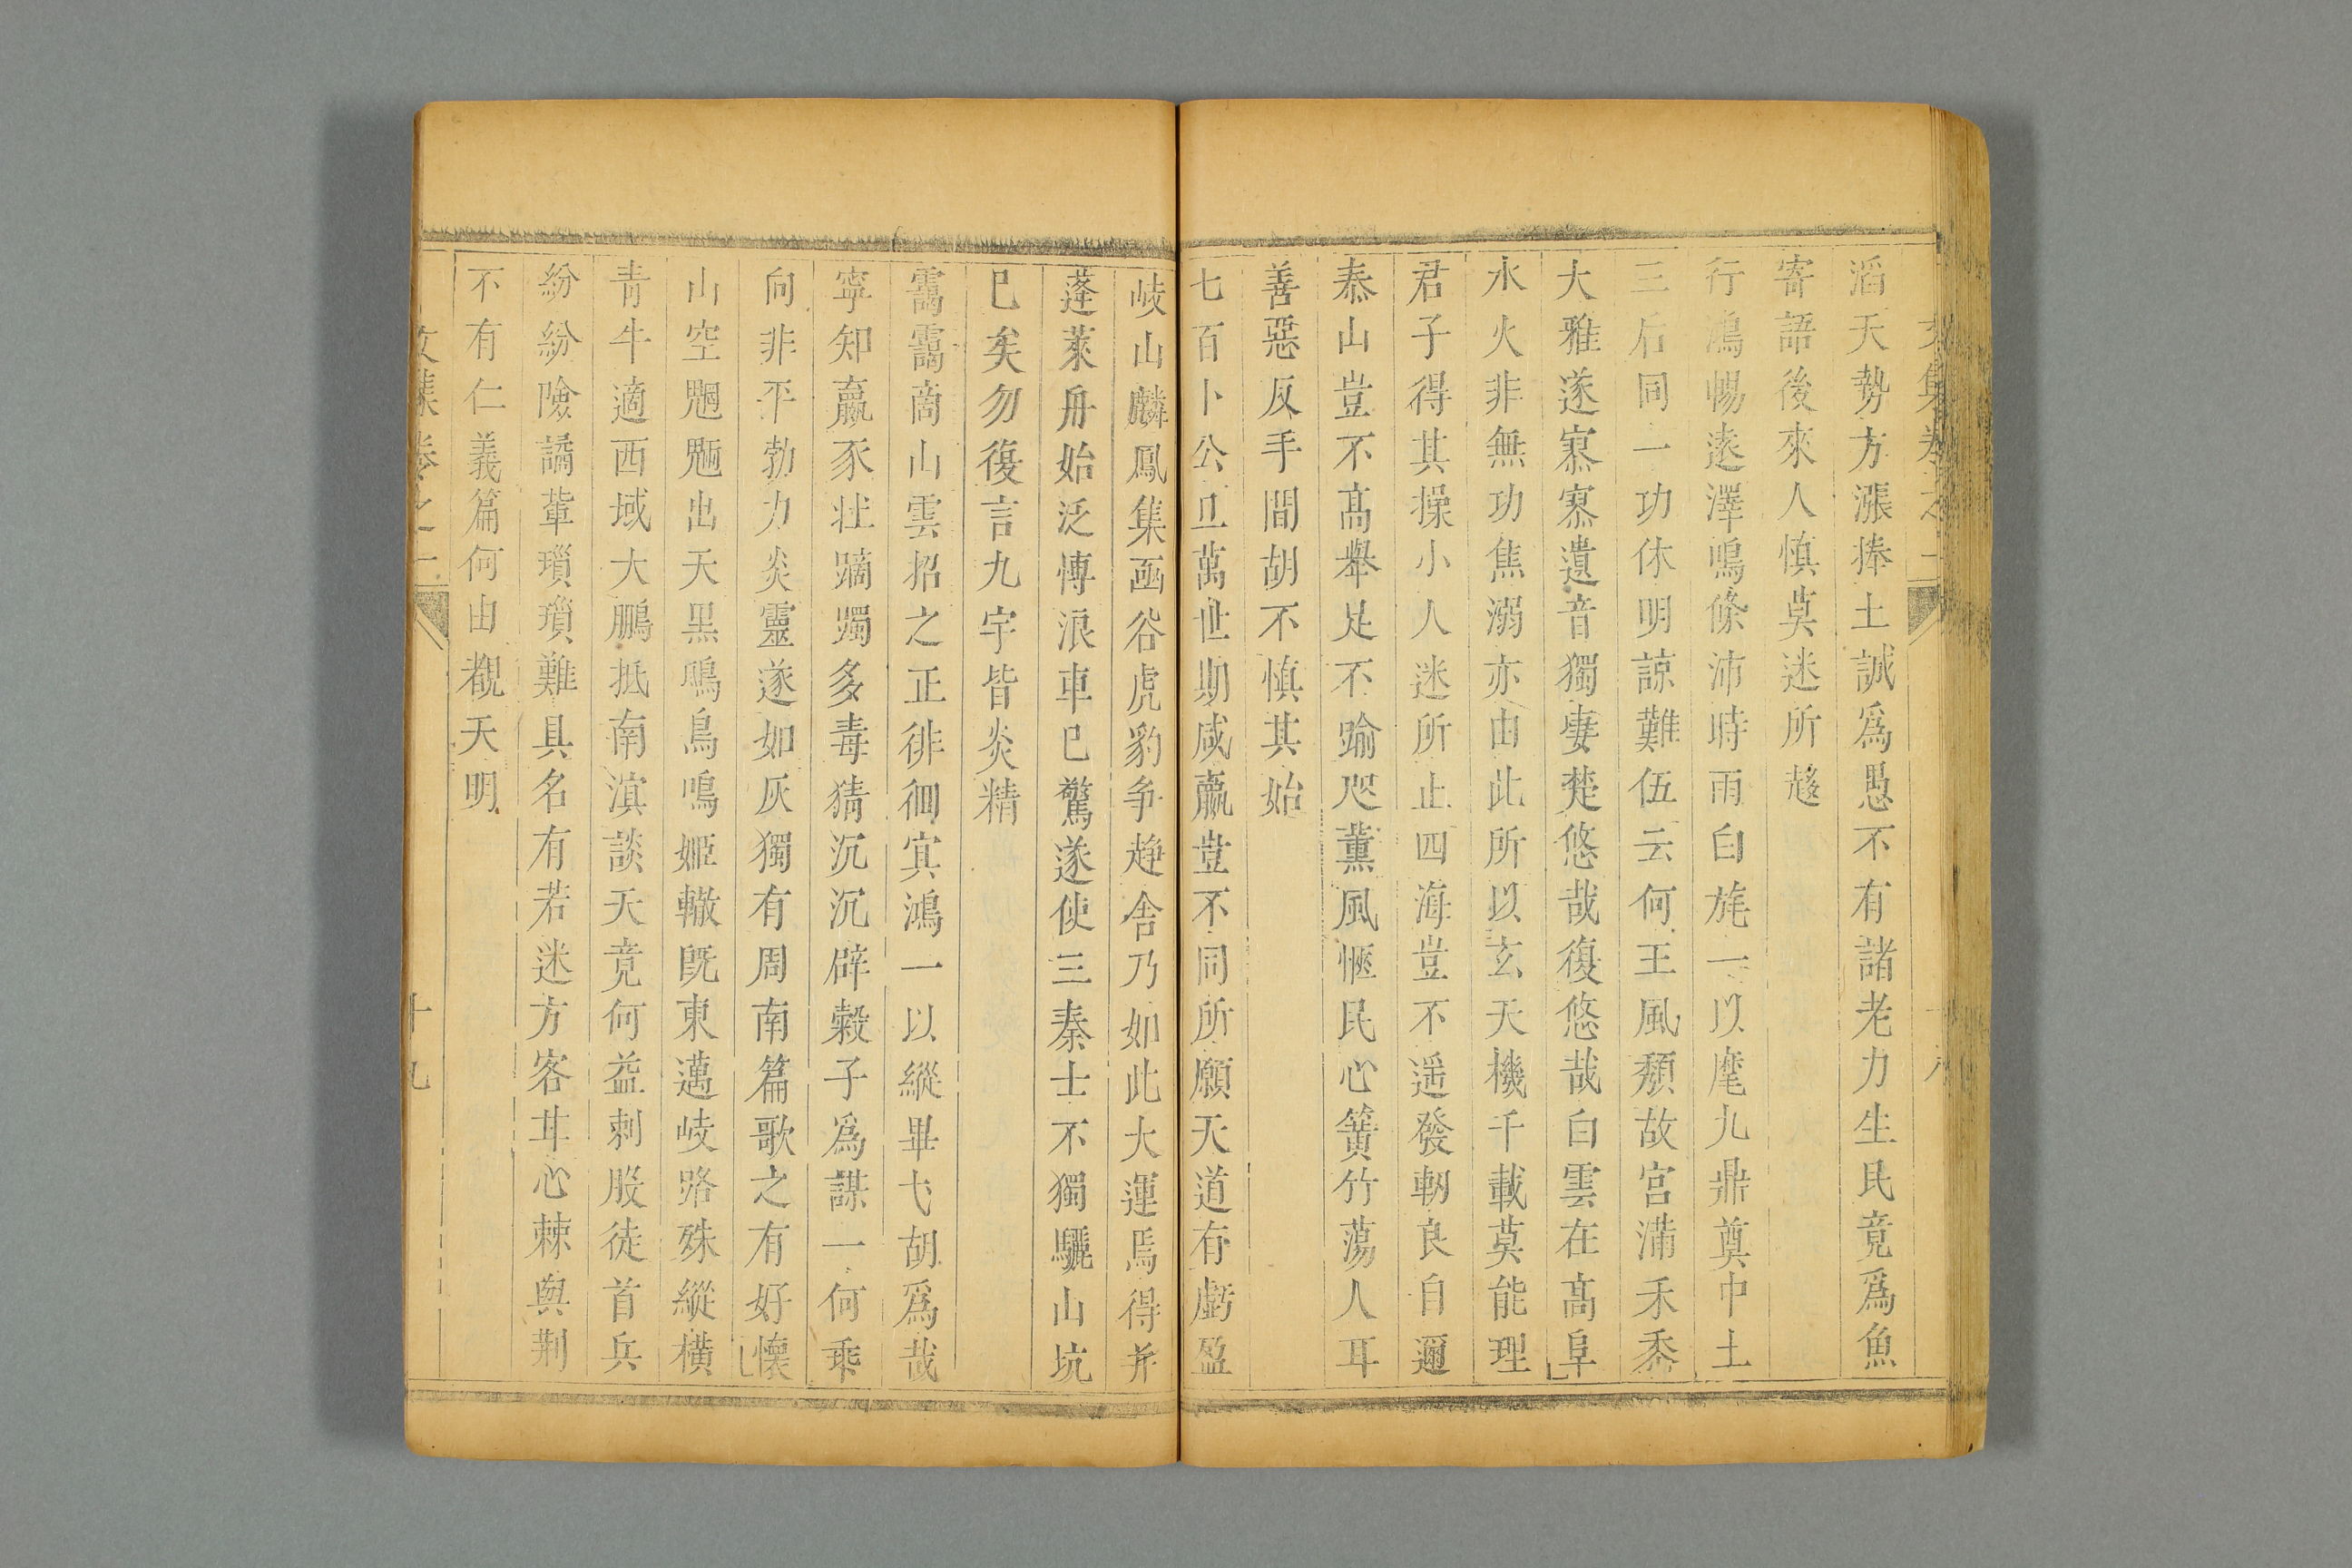 滔天勢方漲捧土誠爲愚不有諸老力生民竟爲魚
寄語後來人慎莫迷所趍
行鴻暢逺澤鳴條沛時雨白旄一以麾九鼎奠中土
三后同一功休明諒難伍云何王風頽故宫滿禾黍
大雅遂寥寥遺音獨悽楚悠哉復悠哉白雲在髙阜
水火非無功焦溺亦由此所以玄天機千載莫能理
君子得其操小人迷所止四海豈不遥發軔良自邇
泰山豈不髙舉足不踰咫薰風愜民心簧竹蕩人耳
善惡反手間胡不慎其始
七百卜公旦萬世期咸嬴豈不同所願天道有虧盈
岐山麟鳳集函谷虎豹争趋舍乃如此大運焉得并
蓬萊舟始泛博浪車已驚遂使三秦士不獨驪山坑
已矣勿復言九宇皆炎精
靄靄商山雲招之正徘徊冥鴻一以縱畢弋胡爲哉
寧知嬴豕壯蹢躅多毒猜沉沉辟穀子爲謀一何乖
向非平勃力炎靈遂如灰獨有周南篇歌之有好懷
山空魍魎出天黑鵂鳥鳴姬轍旣東邁岐路殊縱横
靑牛適西域大鵬抵南濵談天竟何益刺股徒首兵
紛紛險譎輩瑣瑣難具名有若迷方客甘心棘與荆
不有仁義篇何由覩天明
文集卷之二
十九